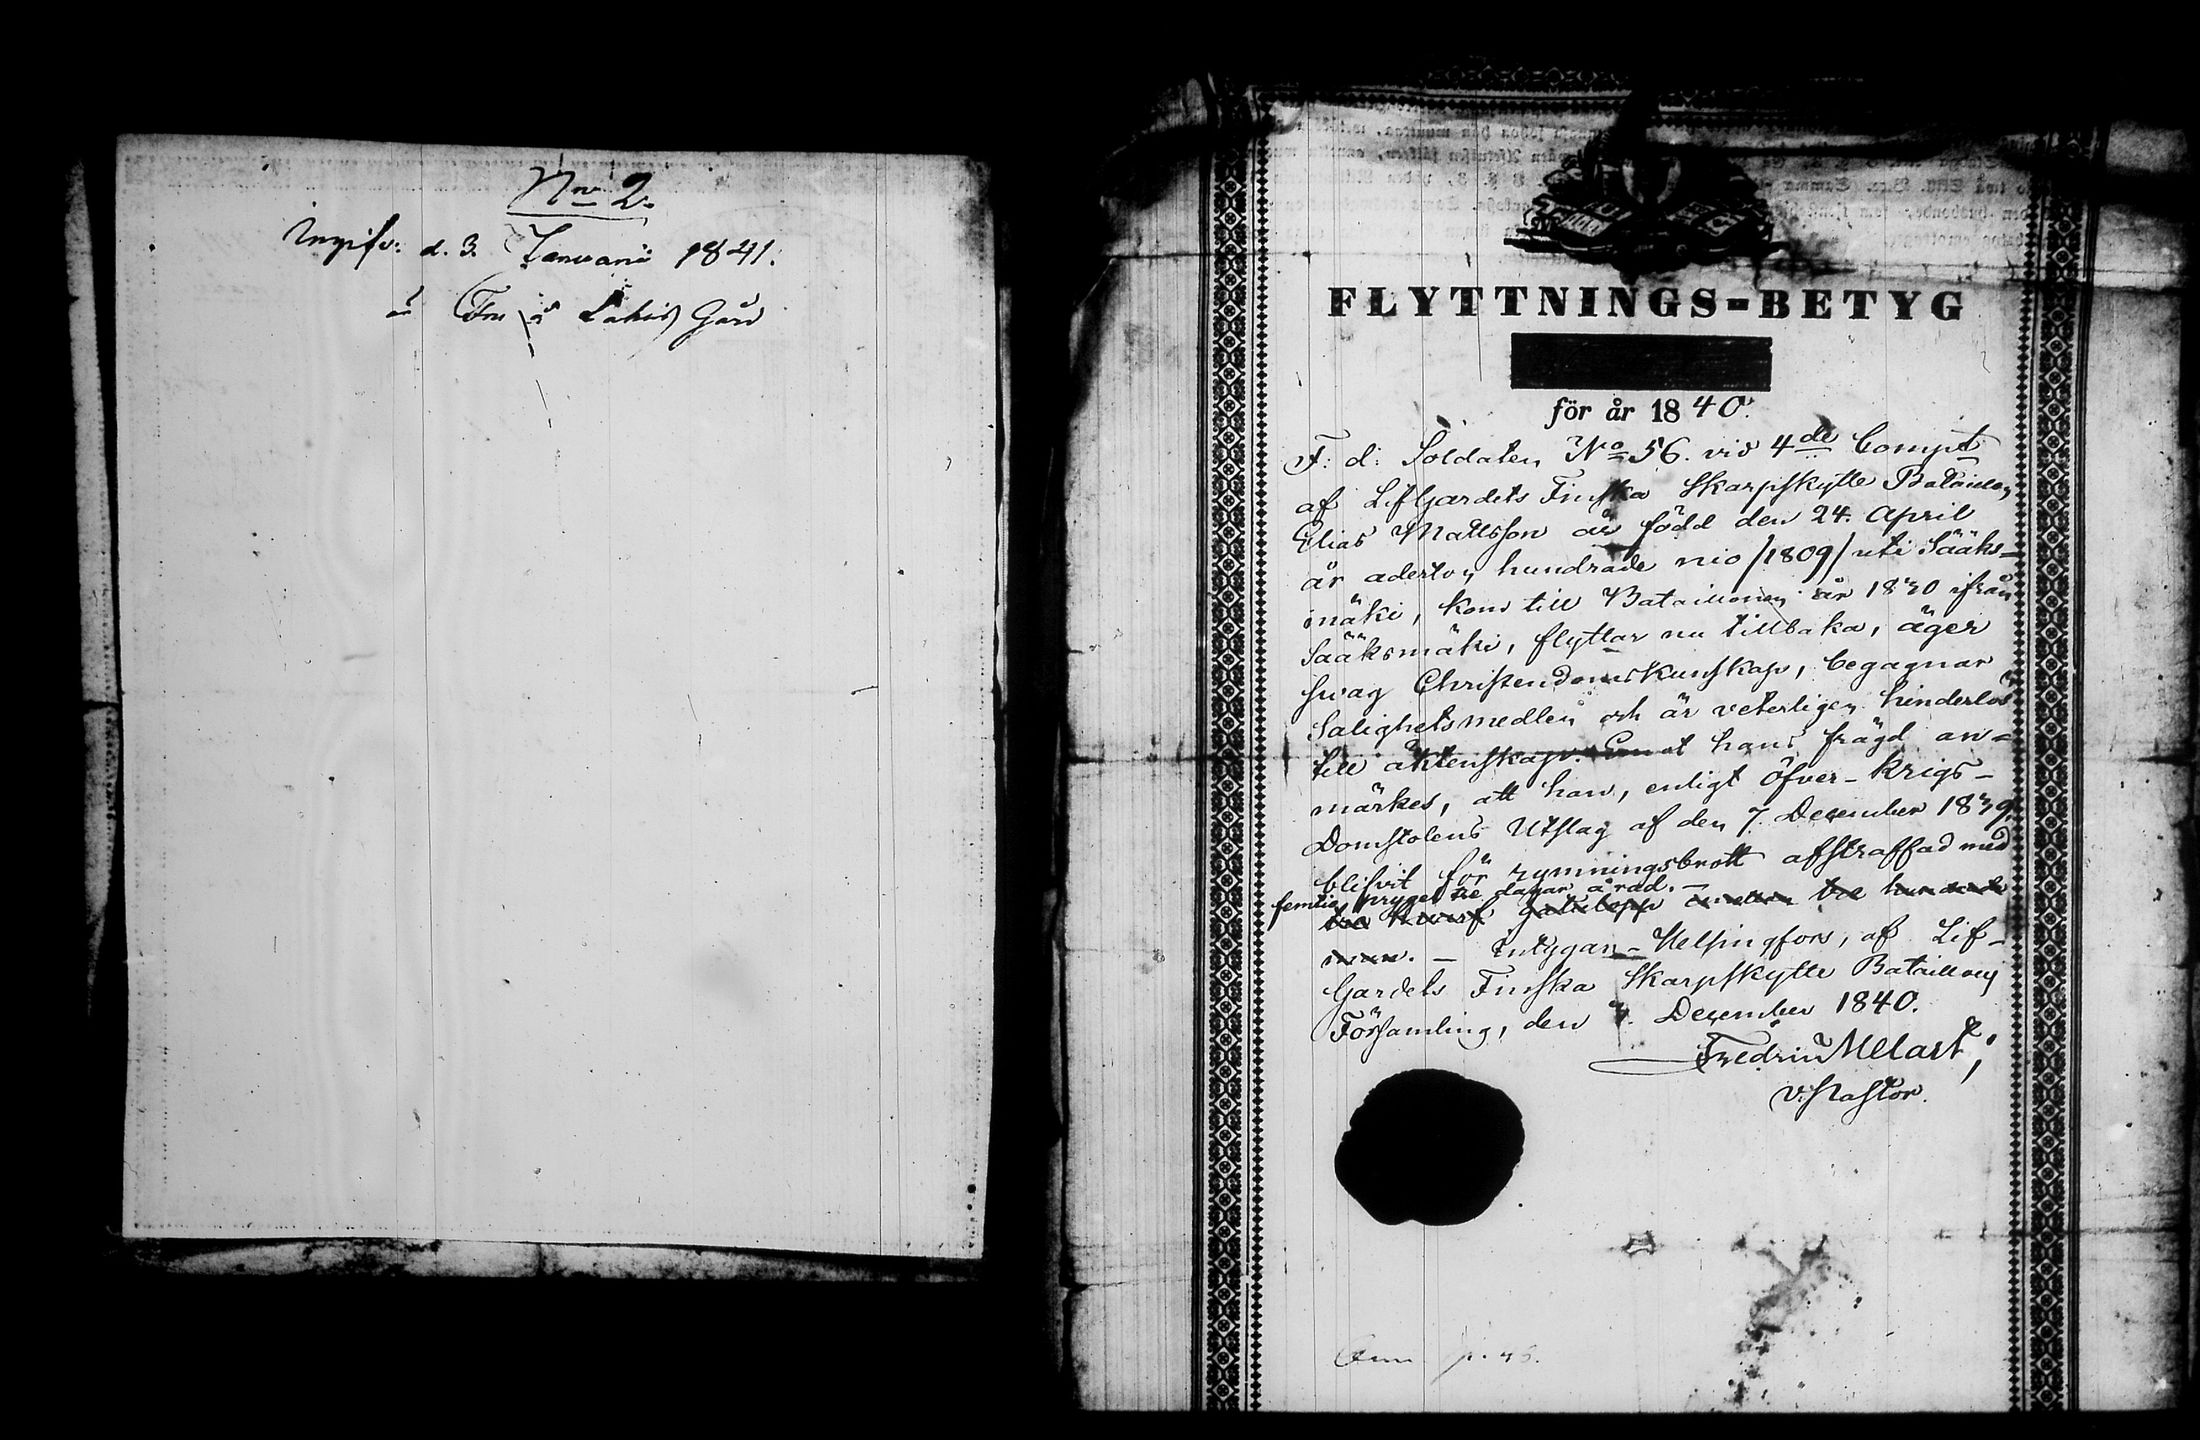 No 2.
Ingifv: d. 3. Januarii 1841.
å Lahis Gård
FLYTTNINGS=BETYG
för år 1840.
F. d. Soldaten No 56. vid 4de Compt
af LifGardets Finska Skarpskytte Bataillon
Elias Mattsson är född den 24. April
år adertonhundrade nio /1809/ uti Sääks-
mäki, kom till Bataillonen år 1830 ifrån
Sääksmäki, flyttar nu tillbaka, äger
svag Christendomskunskap, begagnar
Salighetsmedlen och är veterligen hinderlös
till äktenskap. hans frägd an-
märkes, att han, enligt Öfver-Krigs-
Domstolens Utslag af den 7 December 1839,
blifvit för rymningsbrott afstraffad med
femtio prygel tre dagar å rad. –
gatulopp tre hundrade
man. – Intygar – Helsingfors, af Lif-
Gardets Finska Skarpskytte Bataillons
Församling, den 7. December 1840.
Fredric Melart,
v. Pastor.